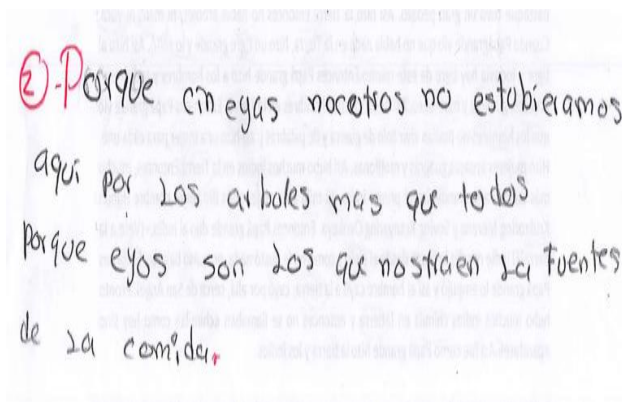 ②-Porque cin eyas nocotros no estobieramos
aqui por Los arboles mas que todos
porque eyos son Los que nostraen La fuentes
de La comida.